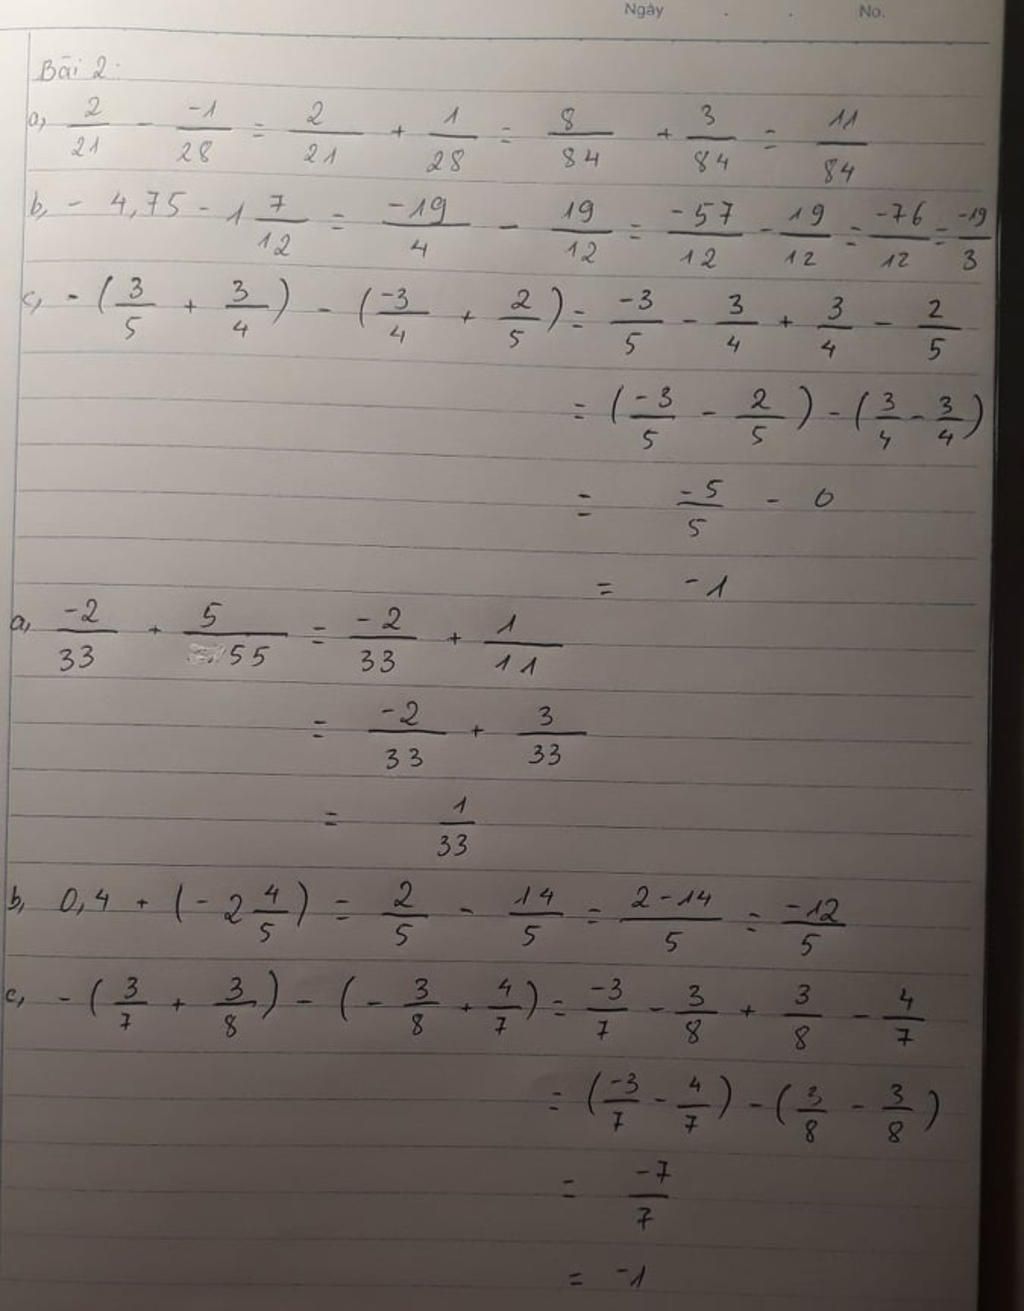 Ngày . . No.
Bài 2:
a, 2/21 - -1/28 = 2/21 + 1/28 = 8/84 + 3/84 = 11/84
b, - 4,75 - 1 7/12 = -19/4 - 19/12 = -57/12 - 19/12 = -76/12 = -19/3
c, - (3/5 + 3/4) - (-3/4 + 2/5) = -3/5 - 3/4 + 3/4 - 2/5
= (-3/5 - 2/5) - (3/4 - 3/4)
= -5/5 - 0
= -1
a, -2/33 + 5/55 = -2/33 + 1/11
= -2/33 + 3/33
= 1/33
b, 0,4 + (- 2 4/5) = 2/5 - 14/5 = 2-14/5 = -12/5
c, - (3/7 + 3/8) - (- 3/8 + 4/7) = -3/7 - 3/8 + 3/8 - 4/7
= (-3/7 - 4/7) - (3/8 - 3/8)
= -7/7
= -1